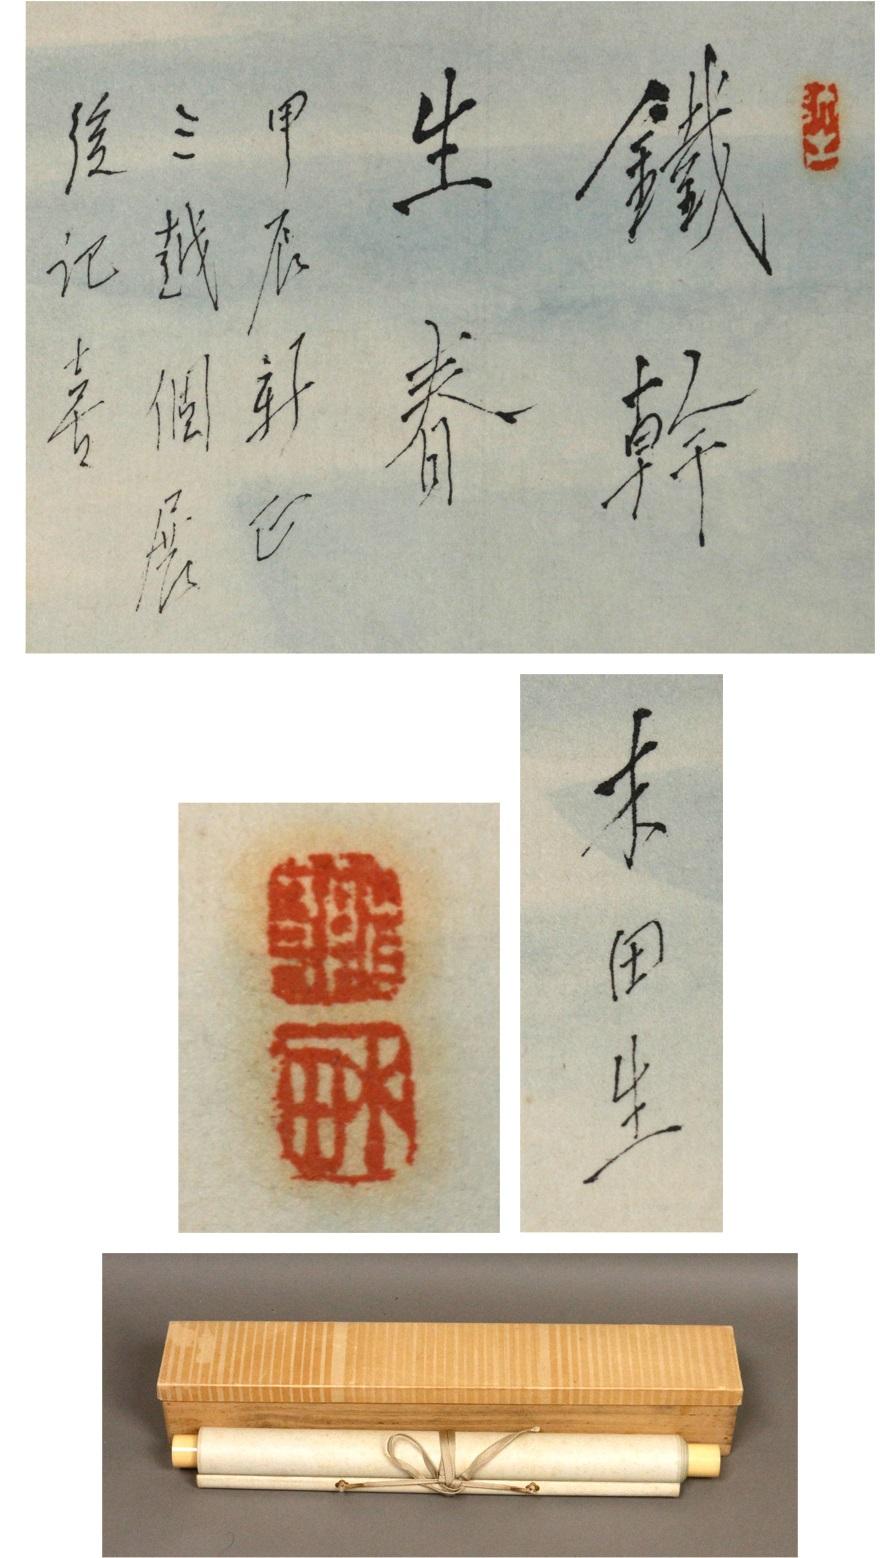 鐵幹
生春
甲辰新正
三越個展
後記喜
未田生